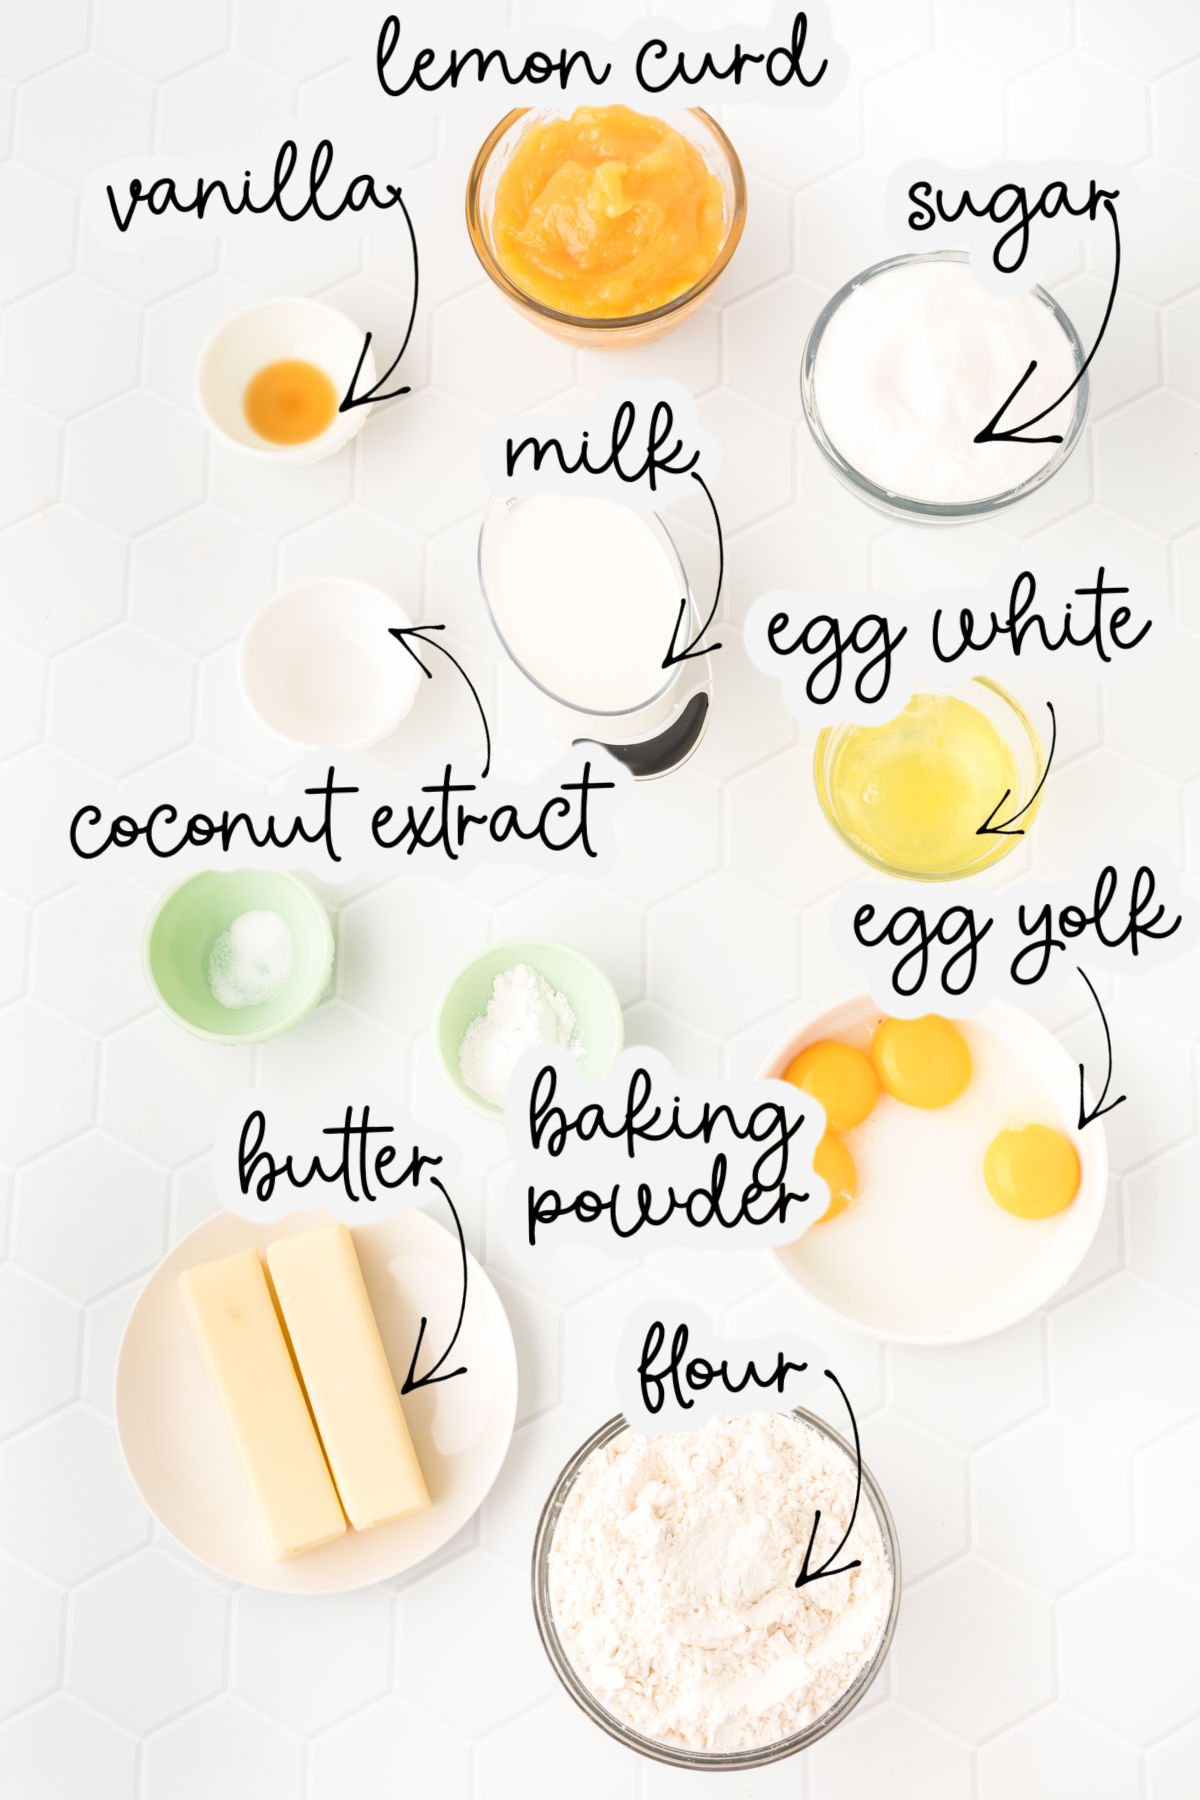 lemon curd
vanilla
sugar
milk
egg white
coconut extract
egg yolk
baking
powder
butter
flour